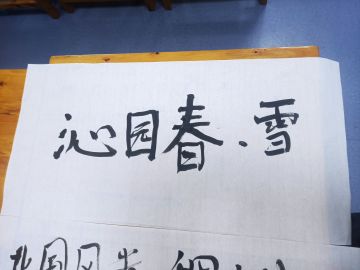 沁园春、雪
北国风光